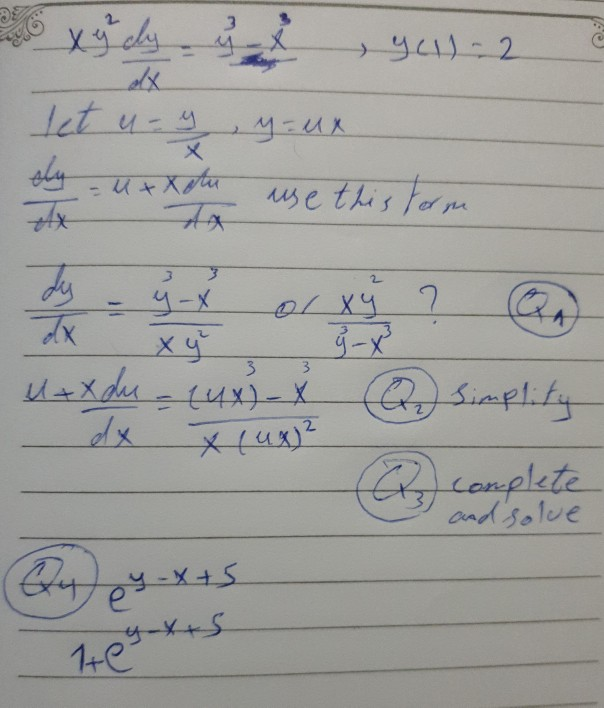 xy² dy/dx = y³ - x³ , y(1) = 2
let u = y/x , y = ux
dy/dx = u + x du/dx use this form
dy/dx = (y³ - x³)/(xy²) or xy²/(y³ - x³) ? Q1
u + x du/dx = ((ux)³ - x³)/(x(ux)²) Q2 simplify
Q3 complete
and solve
Q4 e^(y-x+5)
1+e^(y-x+5)